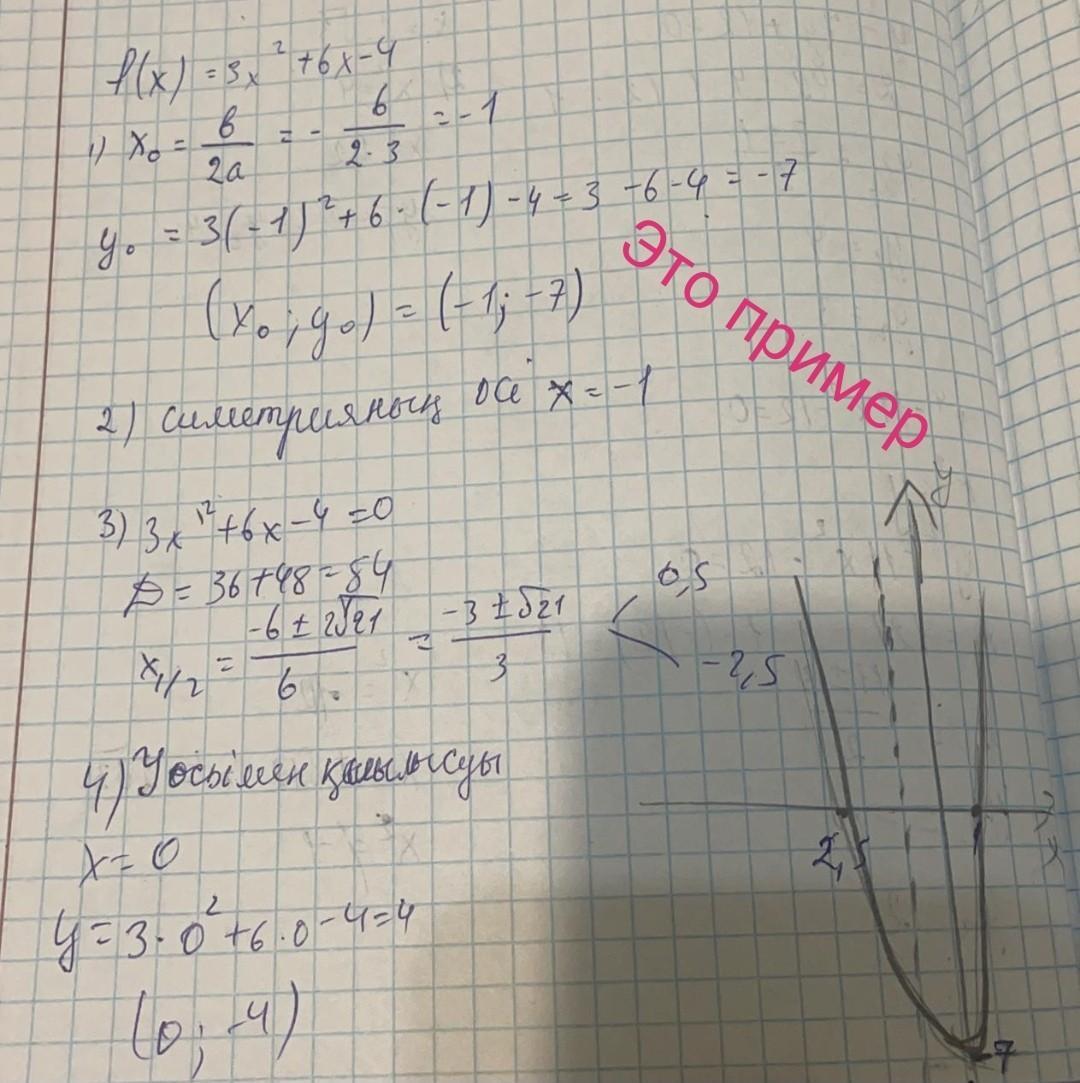 f(x) = 3x² + 6x - 4
1) x₀ = b/2a = - 6/2·3 = -1
y₀ = 3(-1)² + 6·(-1) - 4 = 3 - 6 - 4 = -7
(x₀; y₀) = (-1; -7)
Это пример
2) симетрияның осі x = -1
3) 3x² + 6x - 4 = 0
D = 36 + 48 = 84
x₁/₂ = -6 ± 2√21/6 = -3 ± √21/3
0,5
-2,5
y
x
2,5
1
-7
4) Y осьімен қиылысуы
x = 0
y = 3·0² + 6·0 - 4 = 4
(0; -4)